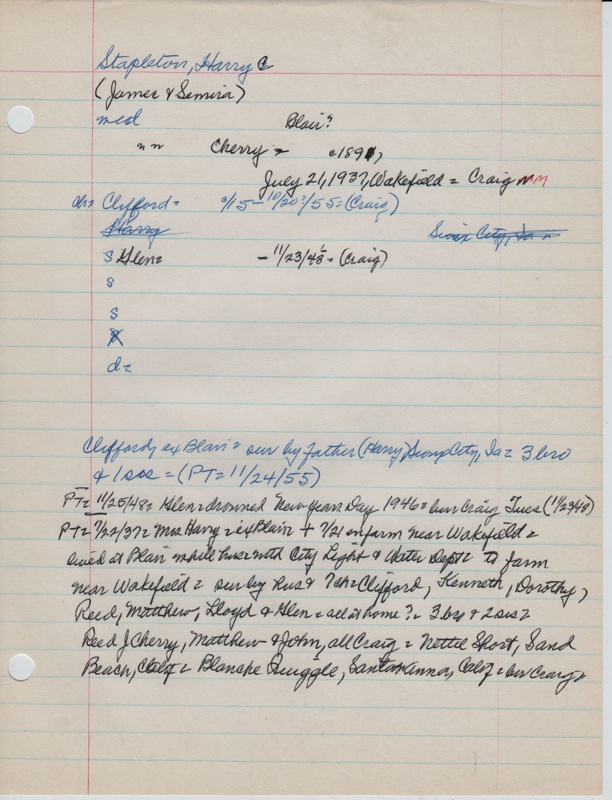 Stapleton, Harry C
(James & Semira)
med Blair?
nn Cherry = c1891,
July 21, 1937, Wakefield = Craig MM
ch= Clifford = c/15 - 10/20?/55 = (Craig)
Harry Sioux City, Ia =
S Glen = - 11/23/48 = (Craig)
S
S
S
d =
Clifford, ex Blair = sur by father (Harry) Sioux City, Ia = 3 bro
& 1 sis = (PT= 11/24/55)
PT= 11/25/48 = Glen = drowned New Years Day 1946 = bur Craig Tues (1/23/48)
PT= 7/22/37 = Mrs Harry = ex Blair + 7/21 on farm near Wakefield =
lived at Blair while hus with City Light & Water Dept = to farm
near Wakefield = sur by hus & 7 ch = Clifford, Kenneth, Dorothy,
Reed, Matthew, Lloyd & Glen = all at home? = 3 bro & 2 sis =
Reed J Cherry, Matthew & John, all Craig = Nettie Short, Sand
Beach, Calif = Blanche Quiggle, Santa Anna, Calif = bur Craig =